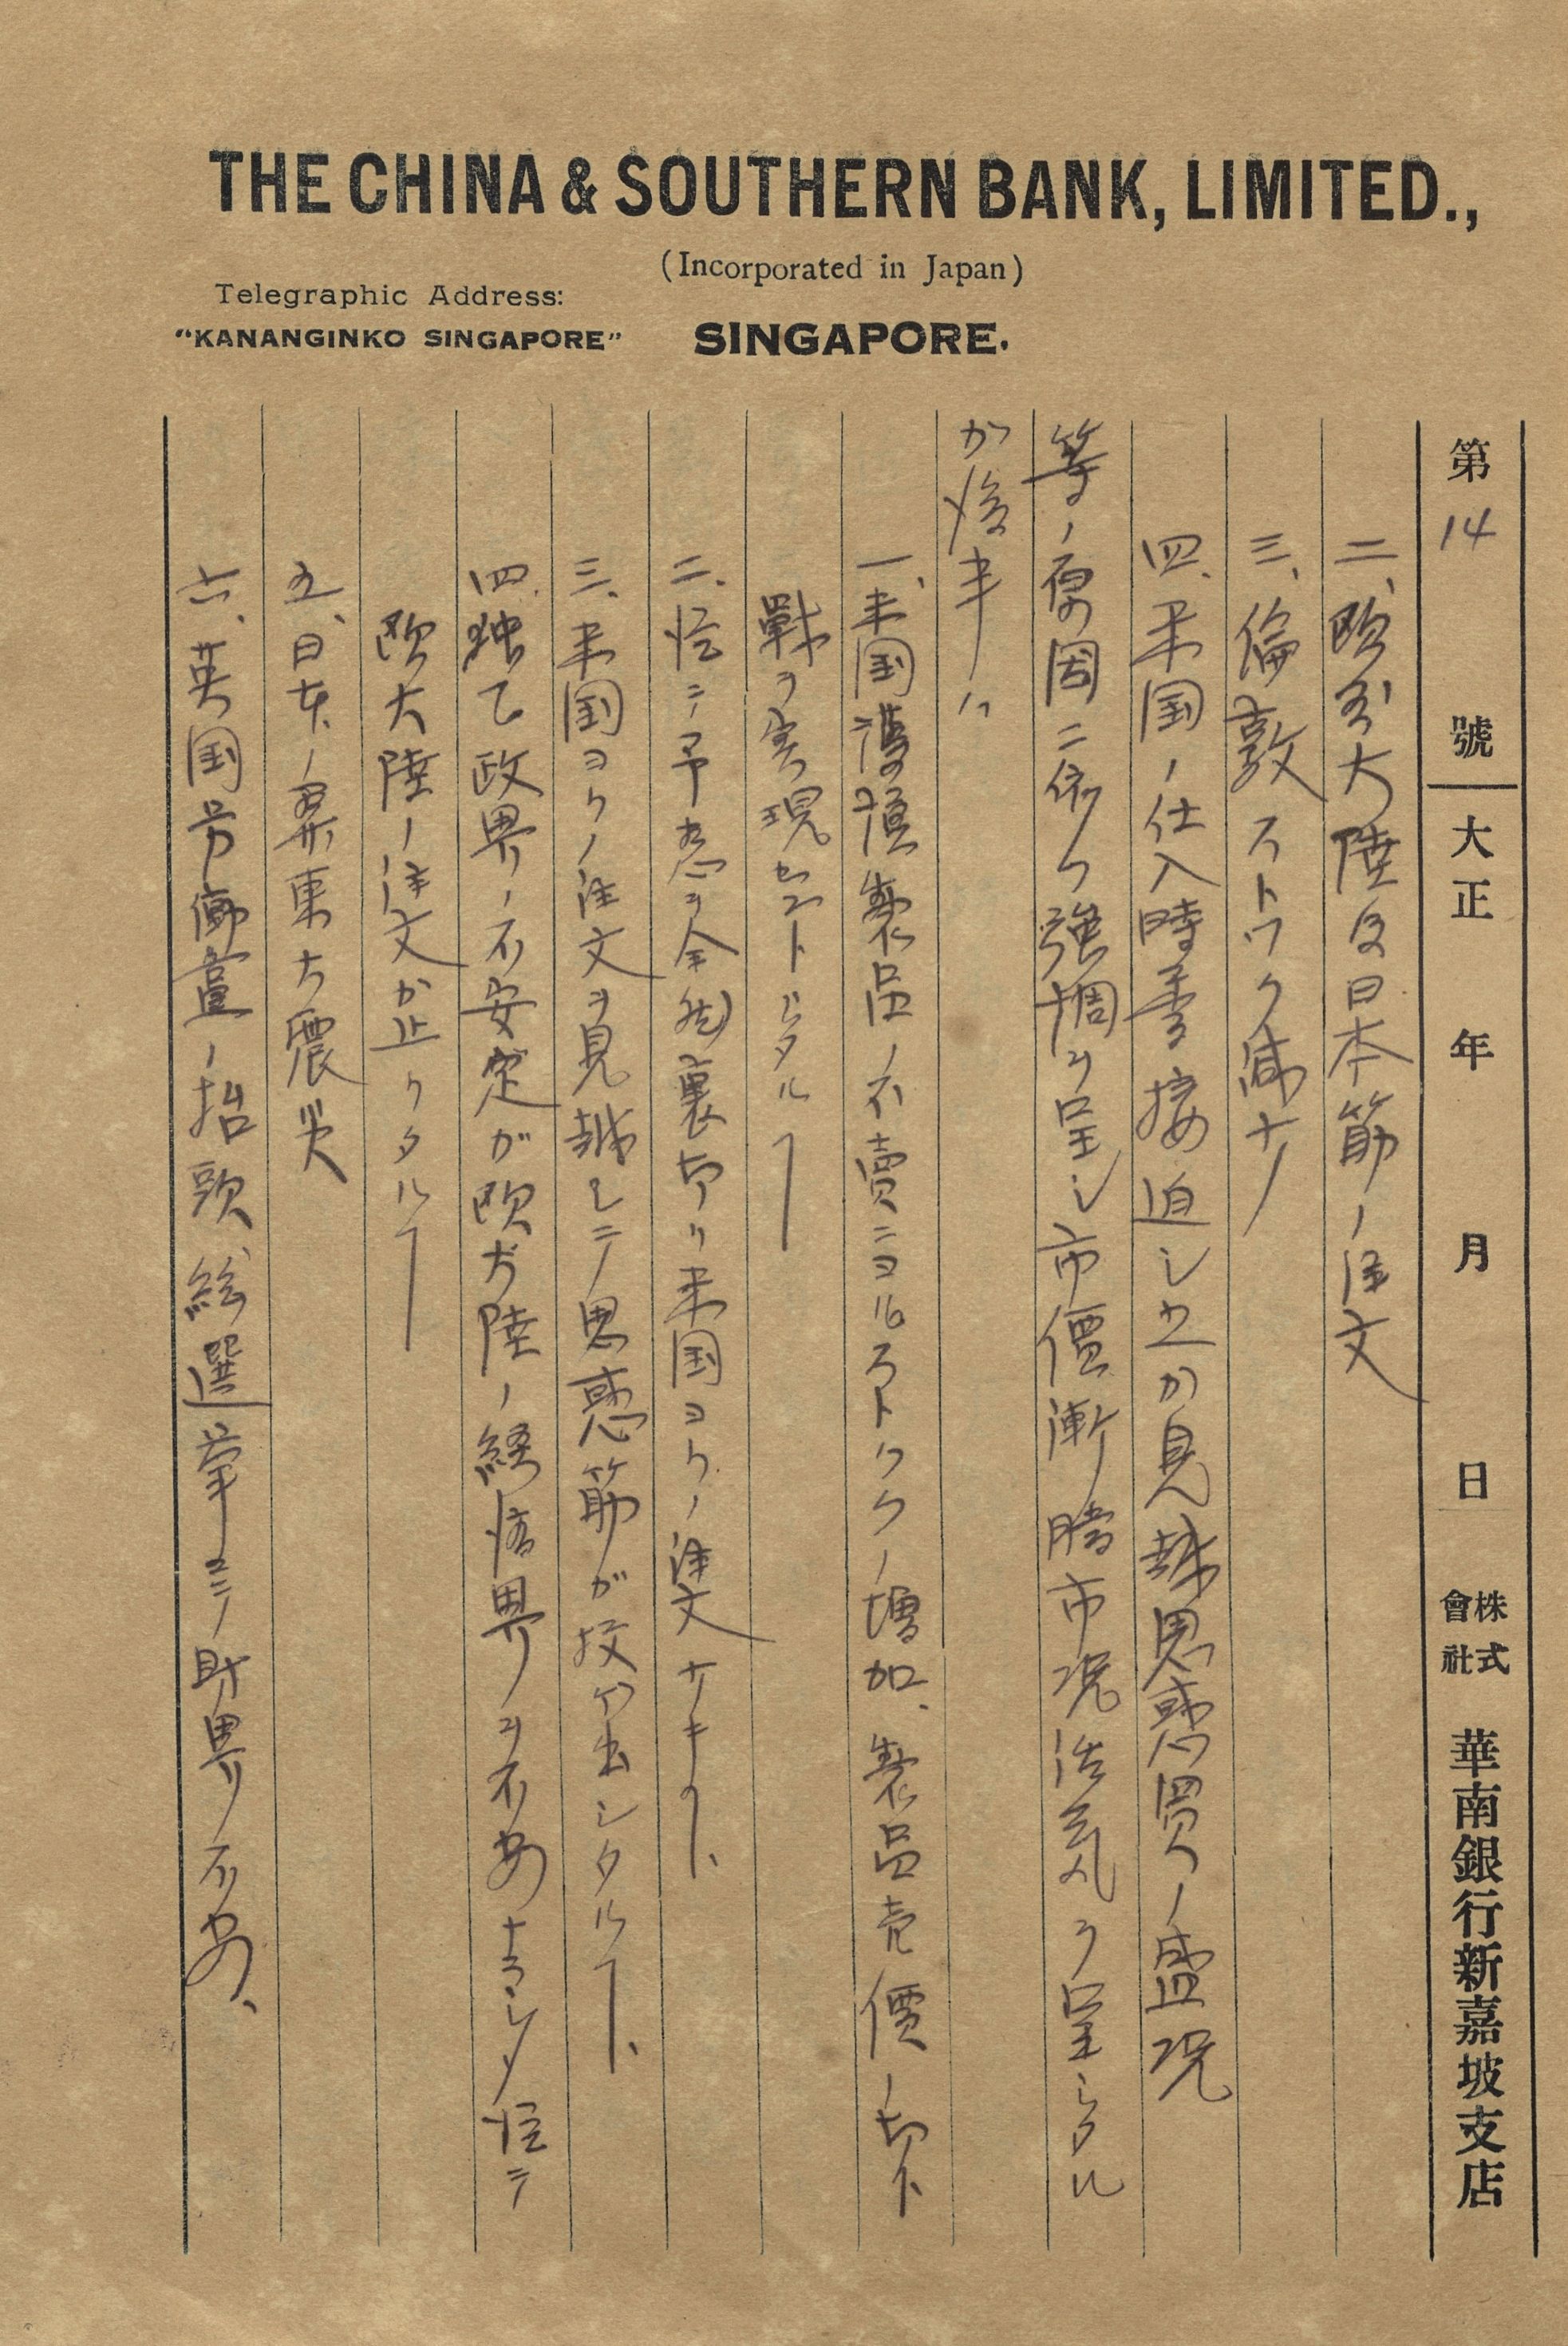 THE CHINA & SOUTHERN BANK, LIMITED.,
(Incorporated in Japan)
Telegraphic Address:
"KANANGINKO SINGAPORE"
SINGAPORE.
第14號 大正 年 月 日 株式會社 華南銀行新嘉坡支店
二、欧大陸及日本筋ノ注文
三、倫敦ストック減少
四、米国ノ仕入時季接迫シ之カ見越思惑買ノ盛况
等ノ原因ニ依リ強調ヲ呈シ市價漸騰市况活気ヲ呈シタル
か後半ハ
一、米国護謨製品ノ不賣ニヨルストックノ増加、製品売價ノ切下
戰ヲ実現セントシタルヿ
二、従テ予想ヲ全然裏切リ米国ヨリノ注文ナキヿ、
三、米国ヨリノ注文ヲ見越シテ思惑筋が投ケ出シタルヿ、
四、独乙政界ノ不安定が欧大陸ノ経済界ヲ不安ナラシメ従テ
欧大陸ノ注文か止リタルヿ
五、日本ノ関東大震災
六、英国労働党ノ抬頭総選挙ニテ財界不安、